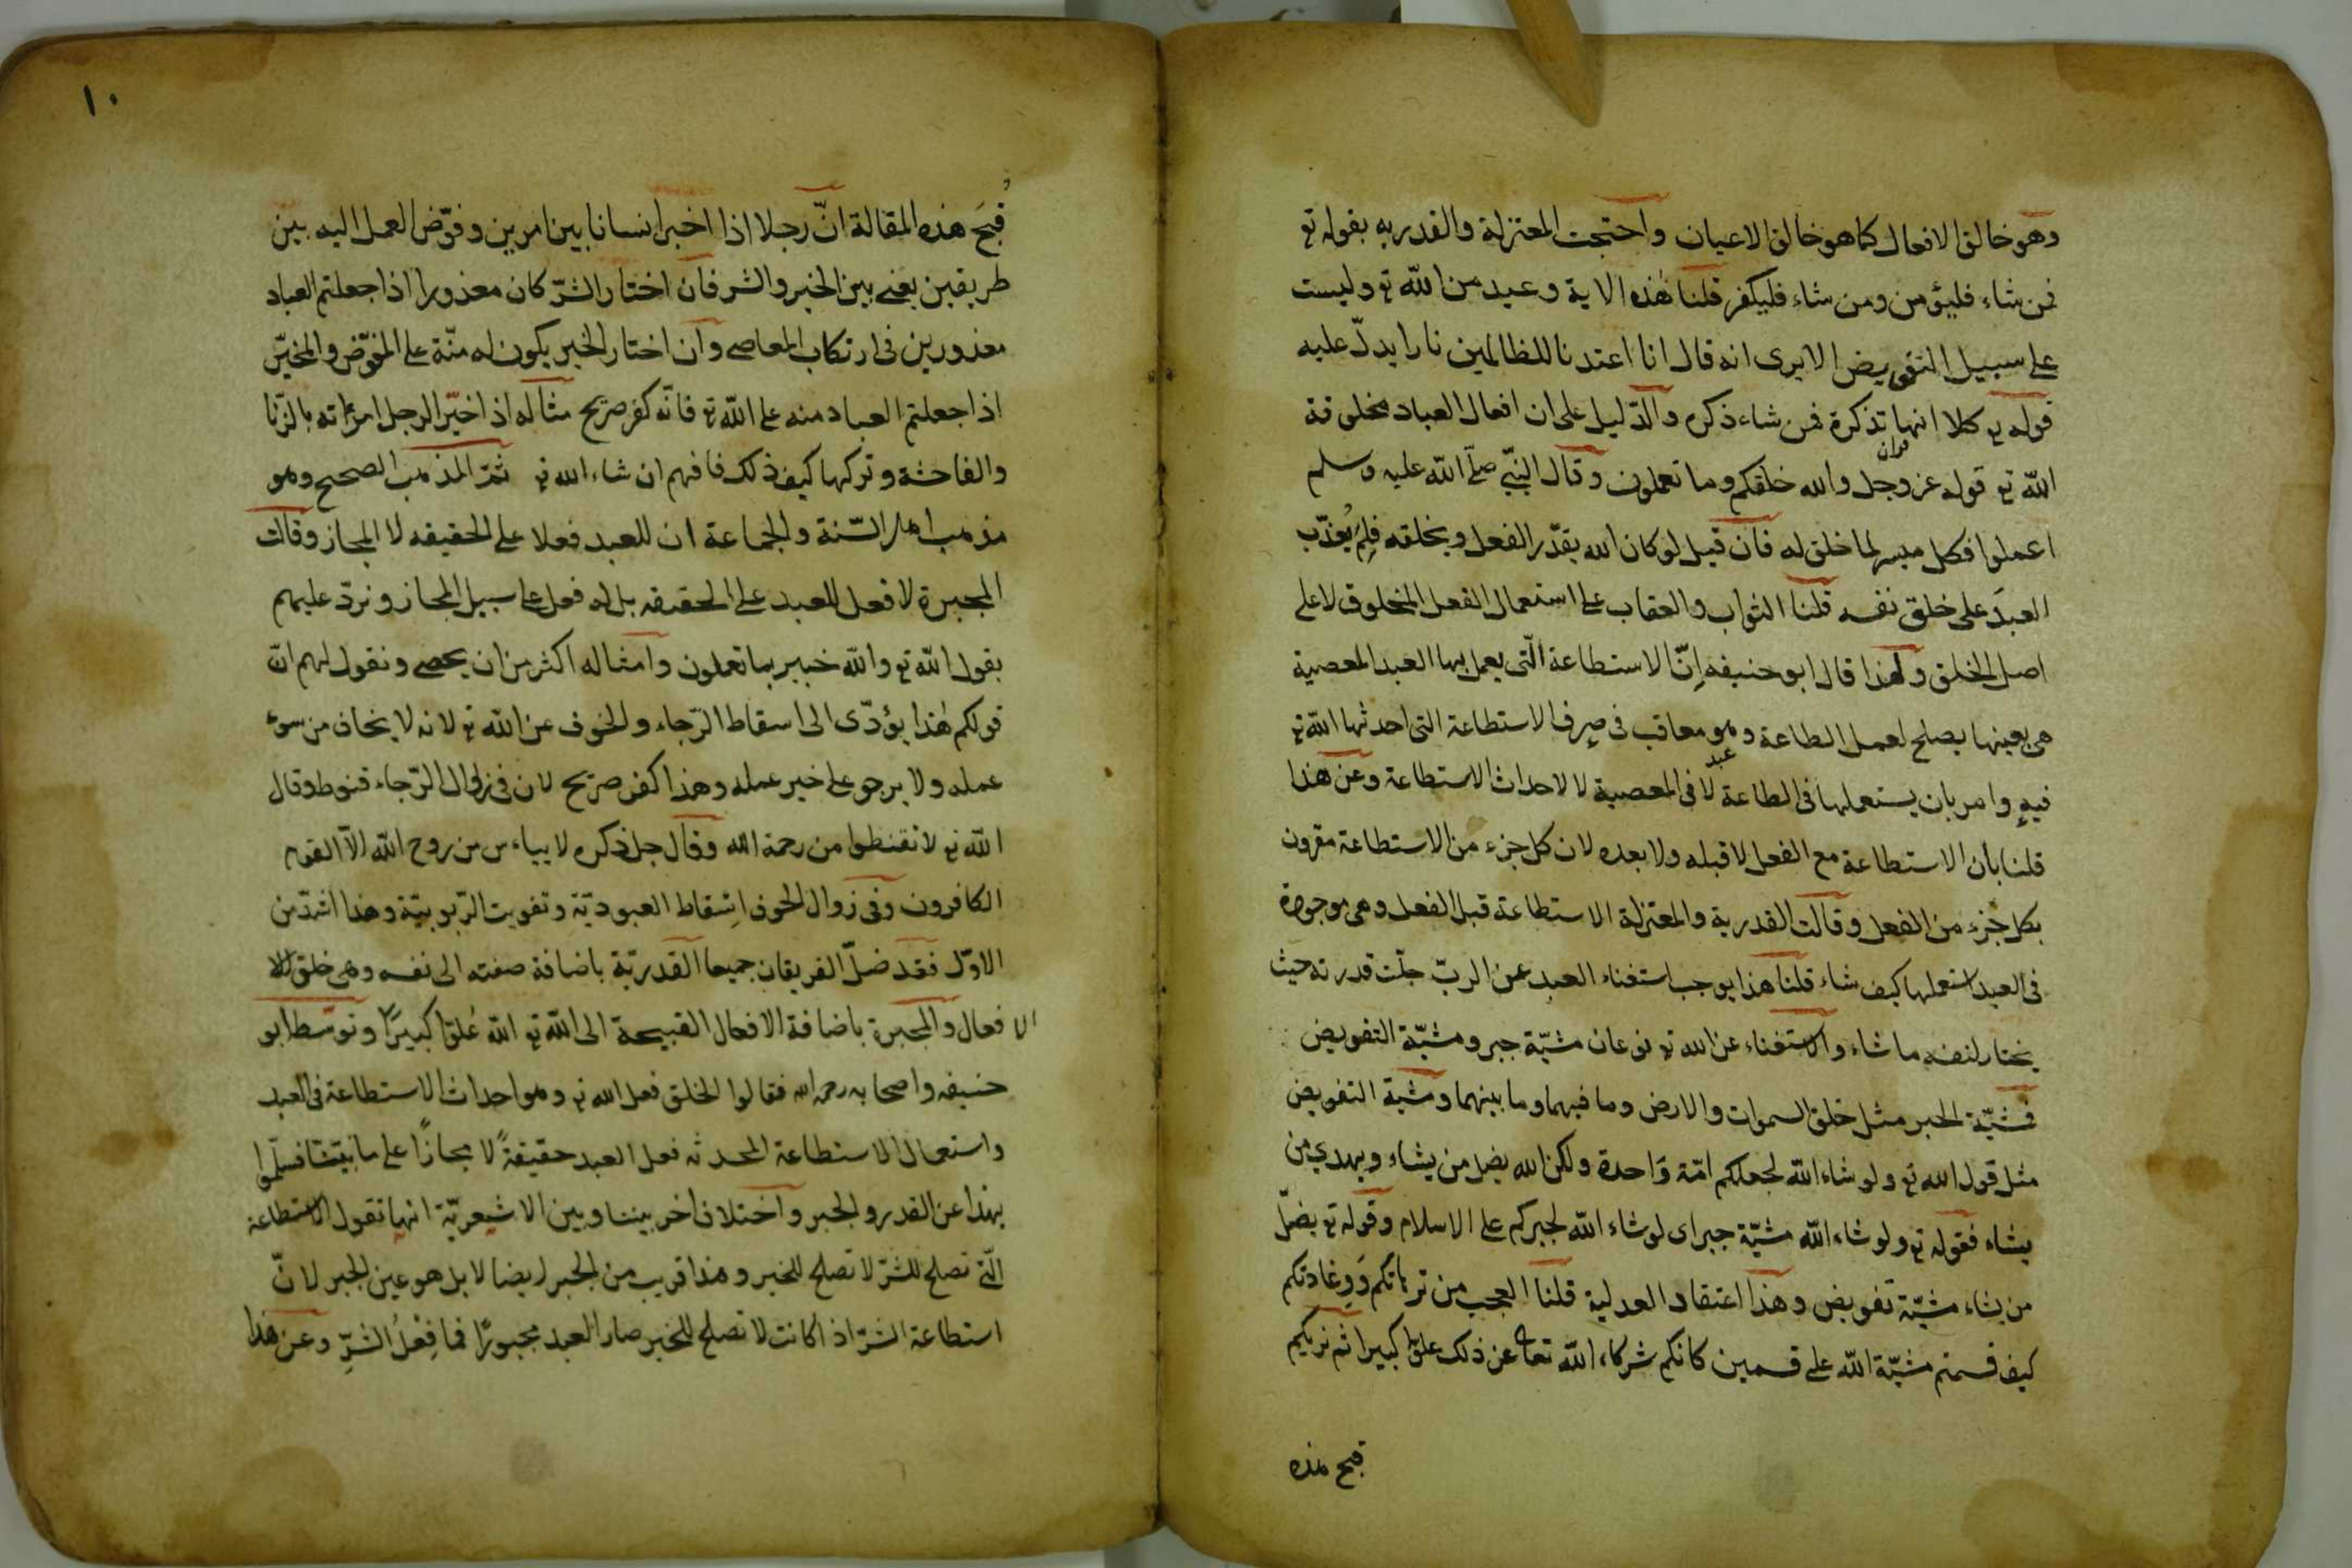 وهو خالق الافعال كما هو خالق الاعيان واحتجت المعتزلة والقدريه بقوله تع
فمن شاء فليؤمن ومن شاء فليكفر قلنا هٰذه الاية وعيد من الله تع وليست
على سبيل التفويض الا يرى انه قال انا اعتدنا للظالمين نارا يدلّ عليه
قوله تع كلا انها تذكرة فمن شاء ذكره والدّليل على ان افعال العباد مخلوقة
الله تع قوله عز وجل والله خلقكم وما تعملون وقال النبيّ صلّى الله عليه وسلم
اعملوا فكل ميسر لما خلق له فان قيل لو كان الله يقدّر الفعل ويخلقه فلِمَ يُعذّب
العبدَ على خلق نفسه قلنا الثواب والعقاب على استعمال الفعل المخلوق لا على
اصل الخلق ولهذا قال ابو حنيفه اِنّ الاستطاعة الّتى يعمل بها العبد المعصية
هى بعينها يصلح لعمل الطاعة وهو معاقب فى صرف الاستطاعة التى احدثها الله تع
فيهِ وامر بان يستعملها فى الطاعة لا فى المعصية لا لاحداث الاستطاعة وعن هذا
قلنا بأن الاستطاعة مع الفعل لا قبله ولا بعده لان كل جزء من الاستطاعة مقرون
بكل جُزء من الفعل وقالت القدرية والمعتزلة الاستطاعة قبل الفعل وهى موجودة
فى العبد استعملها كيف شاء قلنا هذا يوجب استغناء العبد عن الربّ جلّت قدرته حيث
يختار لنفسه ما شاء والاستغناء عن الله تع نوعان مشيّة جبر ومشيّة التفويض
فمشيّة الجبر مثل خلق السموات والارض وما فيهما وما بينهما ومشية التفويض
مثل قول الله تع ولو شاء الله لجعلكم امّة وَاحدة ولكن الله يضل من يشاء ويهدي من
يشاء فقوله تع ولو شاء الله مشيّة جبر اى لو شاء الله لجبركم على الاسلام وقوله تع يضلّ
من يشاء مشيّة تفويض وهذا اعتقاد العدلية قلنا العجب من ترهاتكم
كيف قسمتم مشيّة الله على قسمين كانكم شركاء الله تعا عن ذلك علوّا كبيرا ثم نريكم
قبح هذه
١٠
قُبحَ هذه المقالة انّ رجلا اذا اخبر انسانا بين امرين وفوّض العمل اليه بين
طريقين يعنى بين الخير والشر فان اختار الشرّ كان معذورا اذا جعلتم العباد
معذورين فى ارتكاب المعاصى وان اختار الخير يكون له منّة على المفوّض والمخيّر
اذا جعلتم العباد منه على الله تع فانّه كفر صريح مثاله اذ اخيّر الرجل امرأته بالزنا
والفاحشة وتركها كيف ذلك فافهم ان شاء الله تع ثمّ المذهب الصحيح وهو
مذهب اهل السّنة والجماعة ان للعبد فعلا على الحقيقه لا المجاز وقالت
المجبرة لا فعل للعبد على الحقيقه بل له فعل على سبيل المجاز ونردّ عليهم
بقول الله تع والله خبير بما تعملون وامثاله اكثر من ان يحصى ونقول لهم انّ
قولكم هٰذا يؤدّى الى اسقاط الرّجاء والخوف عن الله تع لانه لا يخاف من سوء
عمله ولا يرجو على خير عمله وهذا كفر صريح لان فى زوال الرّجاء قنوط وقال
الله تع لا تقنطوا من رحمة الله وقال جل ذكره لا يياءس من روح الله الّا القوم
الكافرون وفى زوال الخوف اِسْقاط العبوديّة وتفويت الرّبوبيّة وهذا اشدّ من
الاوّل فقد ضلّ الفريقان جميعا القدريّة باضافة صفته الى نفسه وهى خلق الا
الا فعال والمجبرة باضافة الافعال القبيحة الى الله تع الله عُلوّا كبيرًا وتوسّط ابو
حنيفه واصحابه رحمه الله فقالوا الخلق فعل الله تع وهو احداث الاستطاعة فى العبد
واستعمال الاستطاعة المحدثه فعل العبد حقيقةً لا مجازًا على ما بيّنّا فسلّموا
بهذا عن القدر والجبر واختلاف اخر بيننا وبين الاشعريّة انها تقول الاستطاعة
الّتى تصلح للشرّ لا تصلح للخير وهذا قريب من الجبر ايضا لا بل هو عين الجبر لانّ
استطاعة الشرّ اذا كانت لا تصلح للخير صار العبد مجبورًا فما فِعْلُ الشرِّ وعن هذا